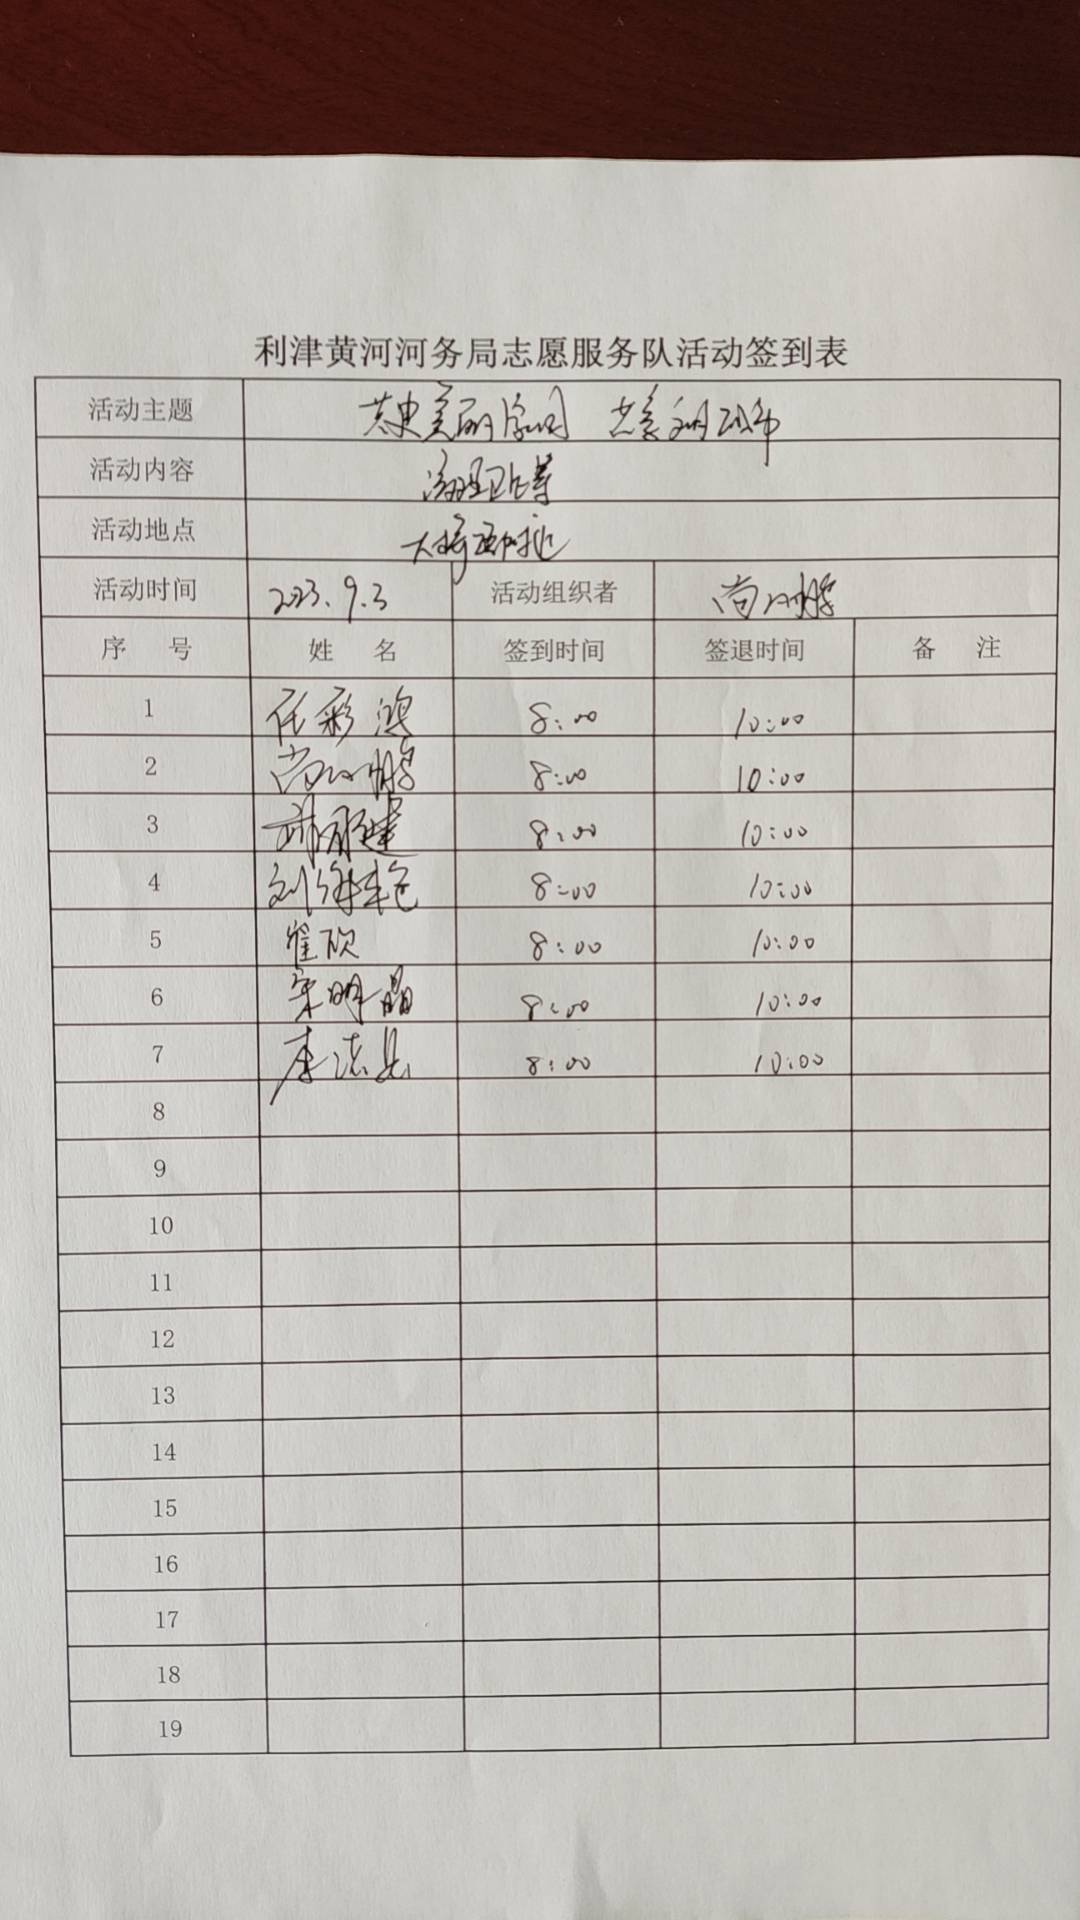 利津黄河河务局志愿服务队活动签到表
活动主题 共 美丽 共 文明城市
活动内容 清理卫生等
活动地点
活动时间 2023.9.3 活动组织者 尚 鹏
序 号 姓 名 签到时间 签退时间 备 注
1 任彩鸿 8:00 10:00
2 尚 鹏 8:00 10:00
3 建 8:00 10:00
4 刘 8:00 10:00
5 崔欣 8:00 10:00
6 宋明晶 8:00 10:00
7 李 8:00 10:00
8
9
10
11
12
13
14
15
16
17
18
19